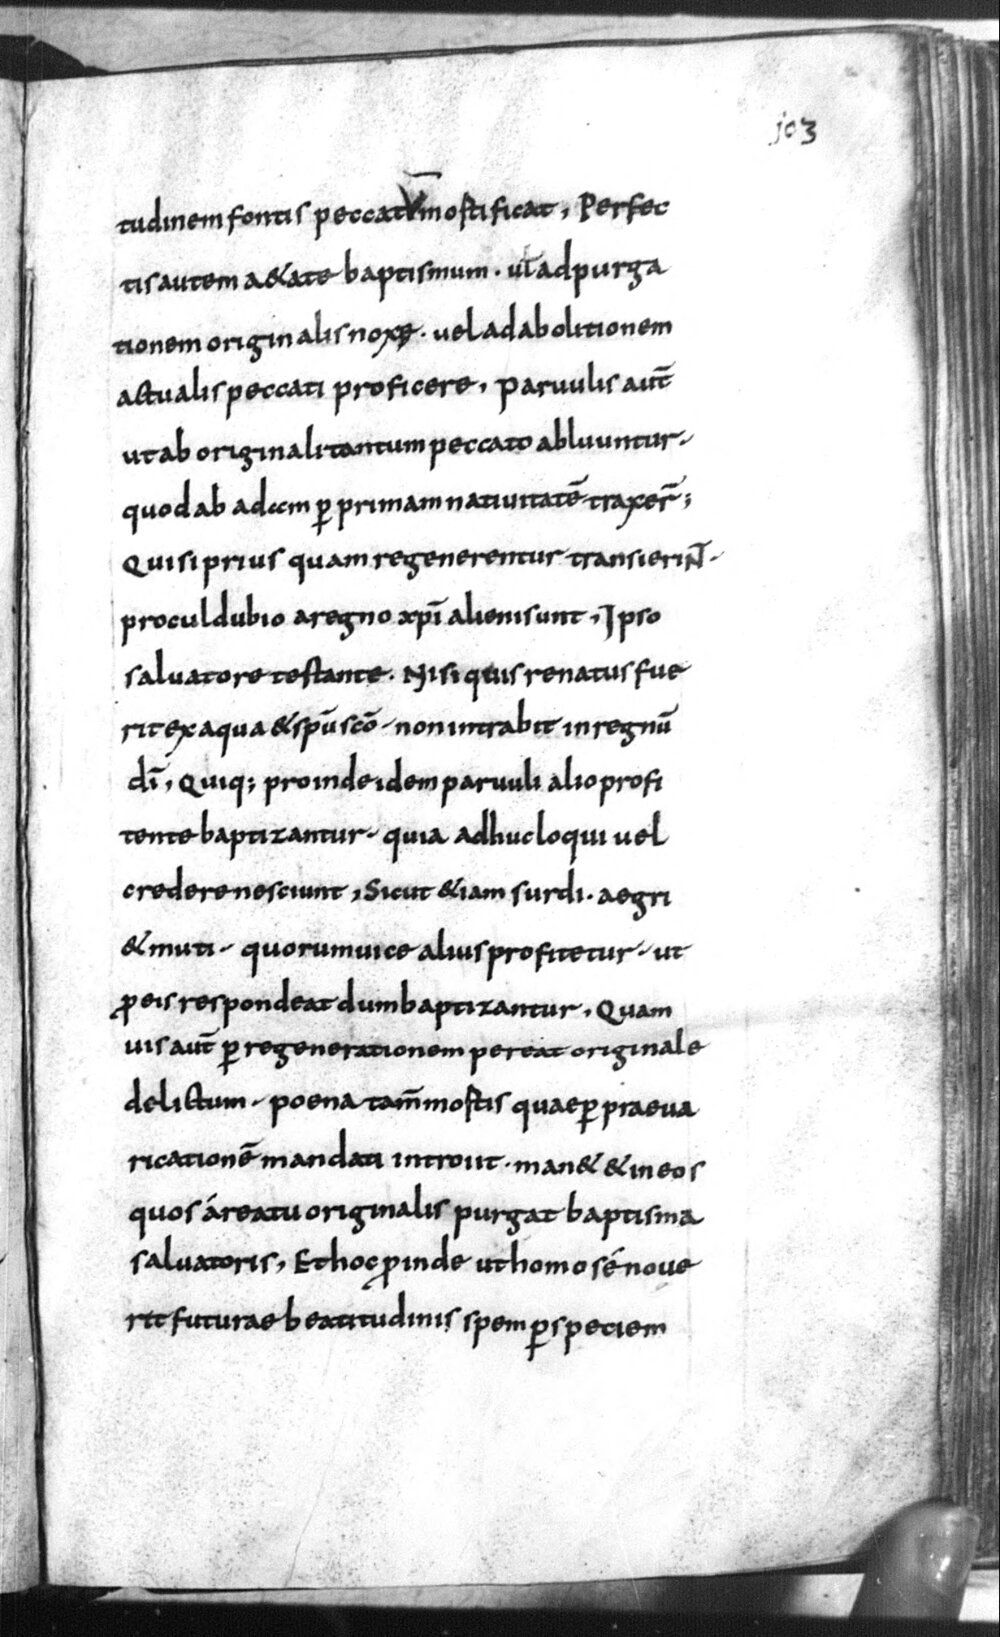 103
tudinem fontis peccatū mortificat, Perfec
tis autem a&ate baptismum · ul̄ ad purga
tionem originalis noxę · uel ad abolitionem
actualis peccati proficere, Paruulis aut̄
ut ab originali tantum peccato abluuntur ·
quod ab adam ꝑ primam natiuitatē traxer̄;
Qui si prius quam regenerentur transierin̄ ·
procul dubio a regno xp̄i alieni sunt, Ipso
saluatore testante · Nisi quis renatus fue
rit ex aqua & sp̄u sc̄o · non intrabit in regnū
dī, Quiq; proinde idem paruuli alio profi
tente baptizantur · quia adhuc loqui uel
credere nesciunt, Sicut &iam surdi · aegri
& muti · quorum uice alius profitetur · ut
ꝓ eis respondeat dum baptizantur, Quam
uis aut̄ ꝑ regenerationem pereat originale
delictum · poena tam̄ mortis quae ꝑ praeua
ricationē mandati introiit · man& & in eos
quos á reatu originalis purgat baptisma
saluatoris, Et hoc ꝓinde ut homo sé noue
rit futurae beatitudinis spem ꝑ speciem